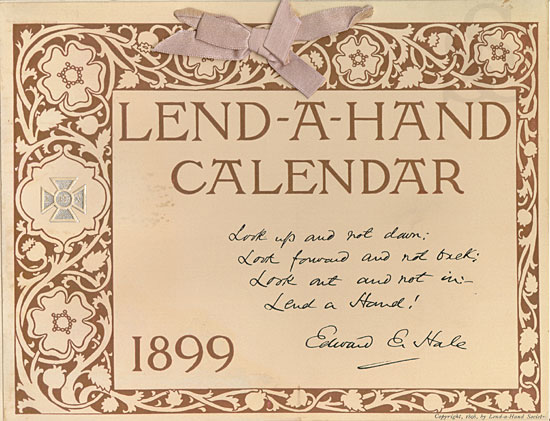 LEND-A-HAND
CALENDAR
Look up and not down:
Look forward and not back:
Look out and not in:—
Lend a Hand!
Edward E. Hale
1899
Copyright, 1898, by Lend-a-Hand Society